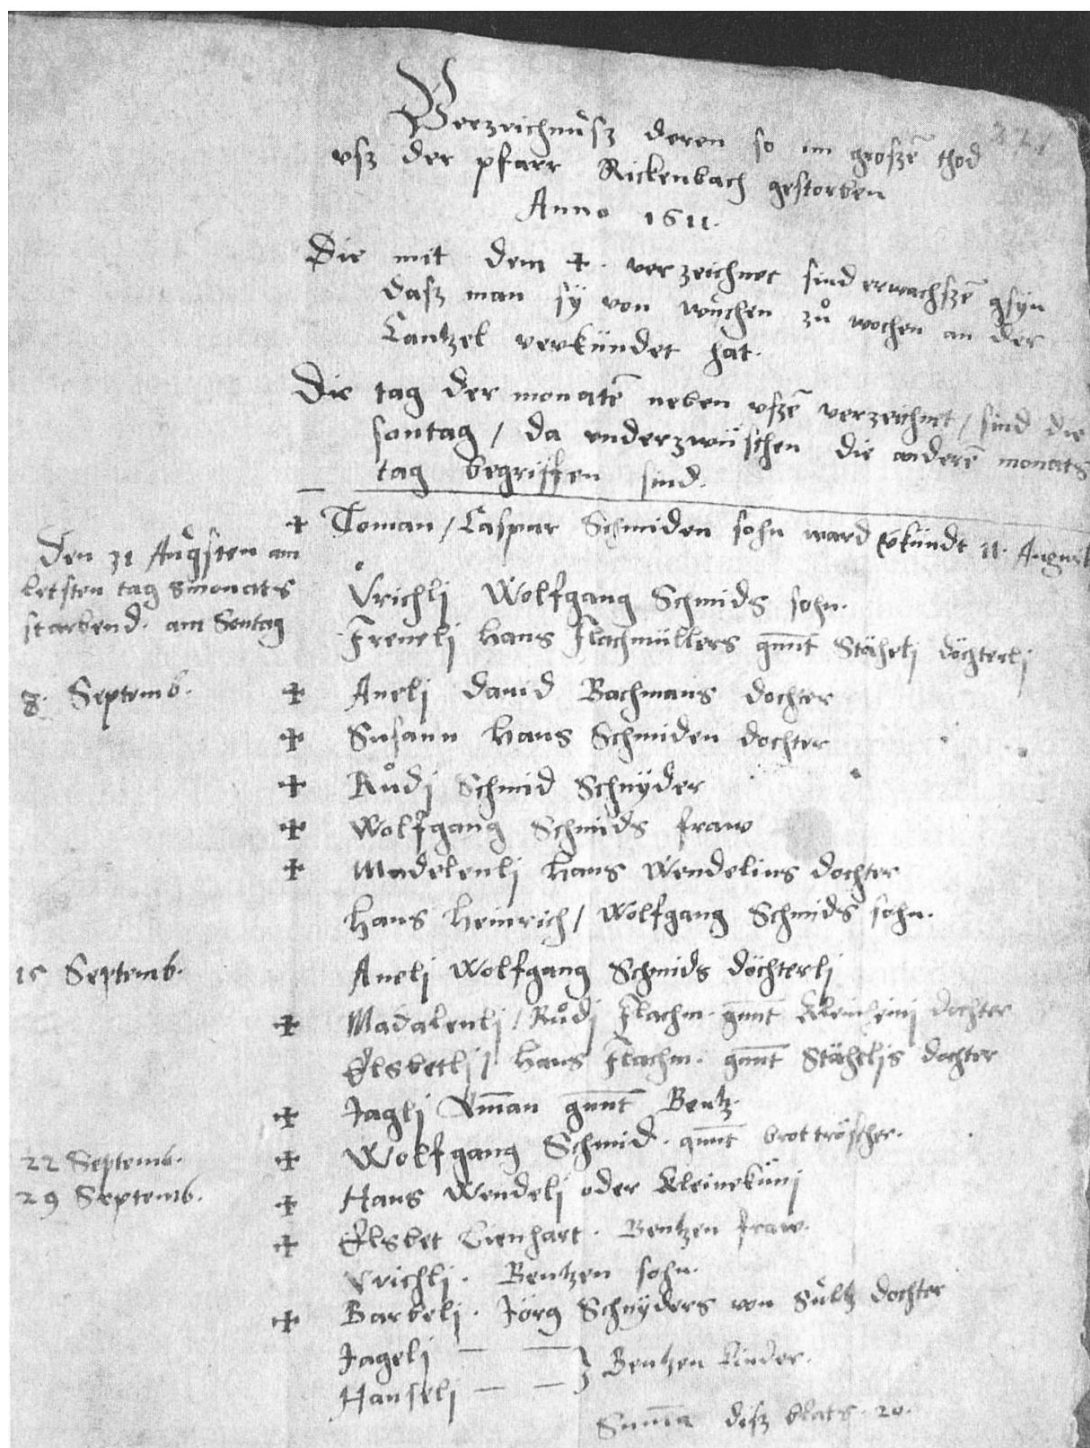 Verzeichnůsz deren so im groszē thod
vsz der pfarr Rickenbach gestorben
Anno 1611.
Die mit dem + verzeichnet sind erwachszē gsyn
dasz man sy von wuchen zů wochen an der
Cantzel verkündet hat.
Die tag der monatē neben vszē verzeichnet / sind die
sontag / da vnderzwüschen die anderē monats
tag begriffen sind.
+ Toman / Caspar Schmiden sohn ward vkündt 11. August
Den 31 Augsten am
letsten tag smonats
starbend. am Sontag
Vrichli Wolfgang Schmids sohn.
Freneli Hans Flachmüllers gnnt Stäheli döchterlj
8. Septemb. + Anelj Dauid Bachmans dochter
+ Susann Hans Schmiden dochter
+ Růdj Schmid Schnyder
+ Wolfgang Schmids fraw
+ Madelenlj Hans Wendelins dochter
Hans Heinrich / Wolfgang Schmids sohn.
15 Septemb. Anelj Wolfgang Schmids döchterlj
+ Madalenlj / Růdj Flachm. gnnt Kleinheinj dochter
Elsbetlj / Hans Flachm. gnnt Stähelis dochter
+ Jaglj gnnt Bentz.
+ Wolfgang Schmid. gnnt brottröscher.
22 Septemb.
29 Septemb. + Hans Wendelj oder
+ Elsbet Lienhart. Bentzen fraw.
Vrichlj. Bentzen sohn.
+ Barbelj. Jörg Schnyders von Sultz dochter
Jagelj — — } Bentzen kinder.
Hanselj — —
Suma disz blats. 20.